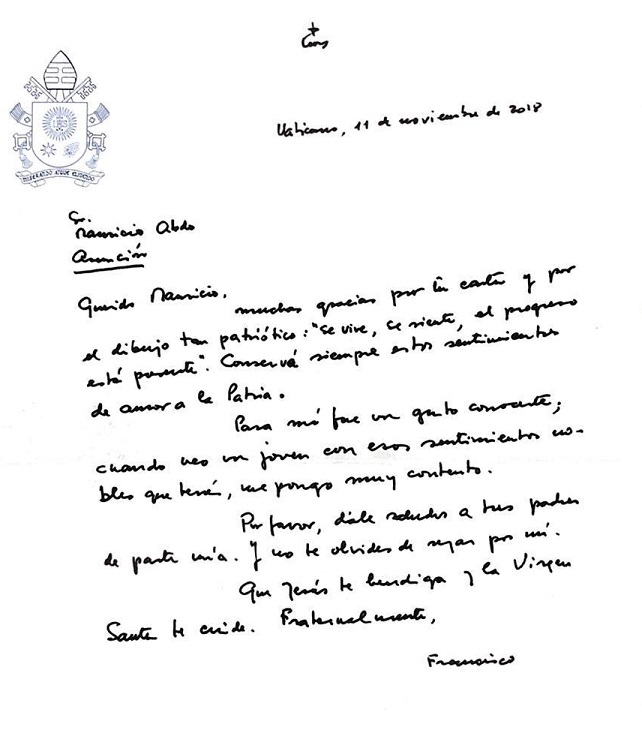 Vaticano, 11 de noviembre de 2018
MISERANDO ATQUE ELIGENDO
Sr.
Mauricio Abdo
Asunción
Querido Mauricio,
muchas gracias por tu carta y por
el dibujo tan patriótico: "Se vive, se siente, el progreso
está presente". Conservá siempre estos sentimientos
de amor a la Patria.
Para mí fue un gusto conocerte;
cuando veo un joven con esos sentimientos no-
bles que tenés, me pongo muy contento.
Por favor, dale saludos a tus padres
de parte mía. Y no te olvides de rezar por mí.
Que Jesús te bendiga y la Virgen
Santa te cuide. Fraternalmente,
Francisco